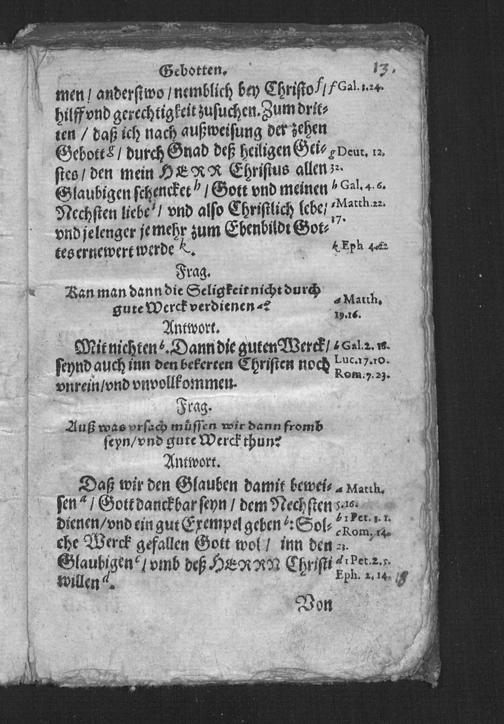 Gebotten.
13.
men / anderstwo / nemblich bey Christo f /
hilff vnd gerechtigkeit zusuchen. Zum drit-
ten / daß ich nach außweisung der zehen
Gebott g / durch Gnad deß heiligen Gei-
stes / den mein HERR Christus allen
Glaubigen schencket h / Gott vnd meinen
Nechsten liebe i / vnd also Christlich lebe /
vnd je lenger je mehr zum Ebenbildt Got-
tes ernewert werde k.
f Gal. 1.24.
g Deut. 12.
32.
h Gal. 4.6.
i Matth. 22.
17.
k Eph 4.
Frag.
Kan man dann die Seligkeit nicht durch
gute Werck verdienen a?
a Matth.
19.16.
Antwort.
Mit nichten b. Dann die guten Werck /
seynd auch inn den bekerten Christen noch
vnrein / vnd vnvollkommen.
b Gal. 2. 16.
Luc. 17.10.
Rom. 7.23.
Frag.
Auß was vrsach müssen wir dann fromb
seyn / vnd gute Werck thun?
Antwort.
Daß wir den Glauben damit bewei-
sen a / Gott danckbar seyn / dem Nechsten
dienen / vnd ein gut Exempel geben b : Sol-
che Werck gefallen Gott wol / inn den
Glaubigen c / vmb deß HERRN Christi
willen d.
a Matth.
5.16.
b 1 Pet. 3. 1.
c Rom. 14.
23.
d 1 Pet. 2. 5.
Eph. 2. 14.
18
Von